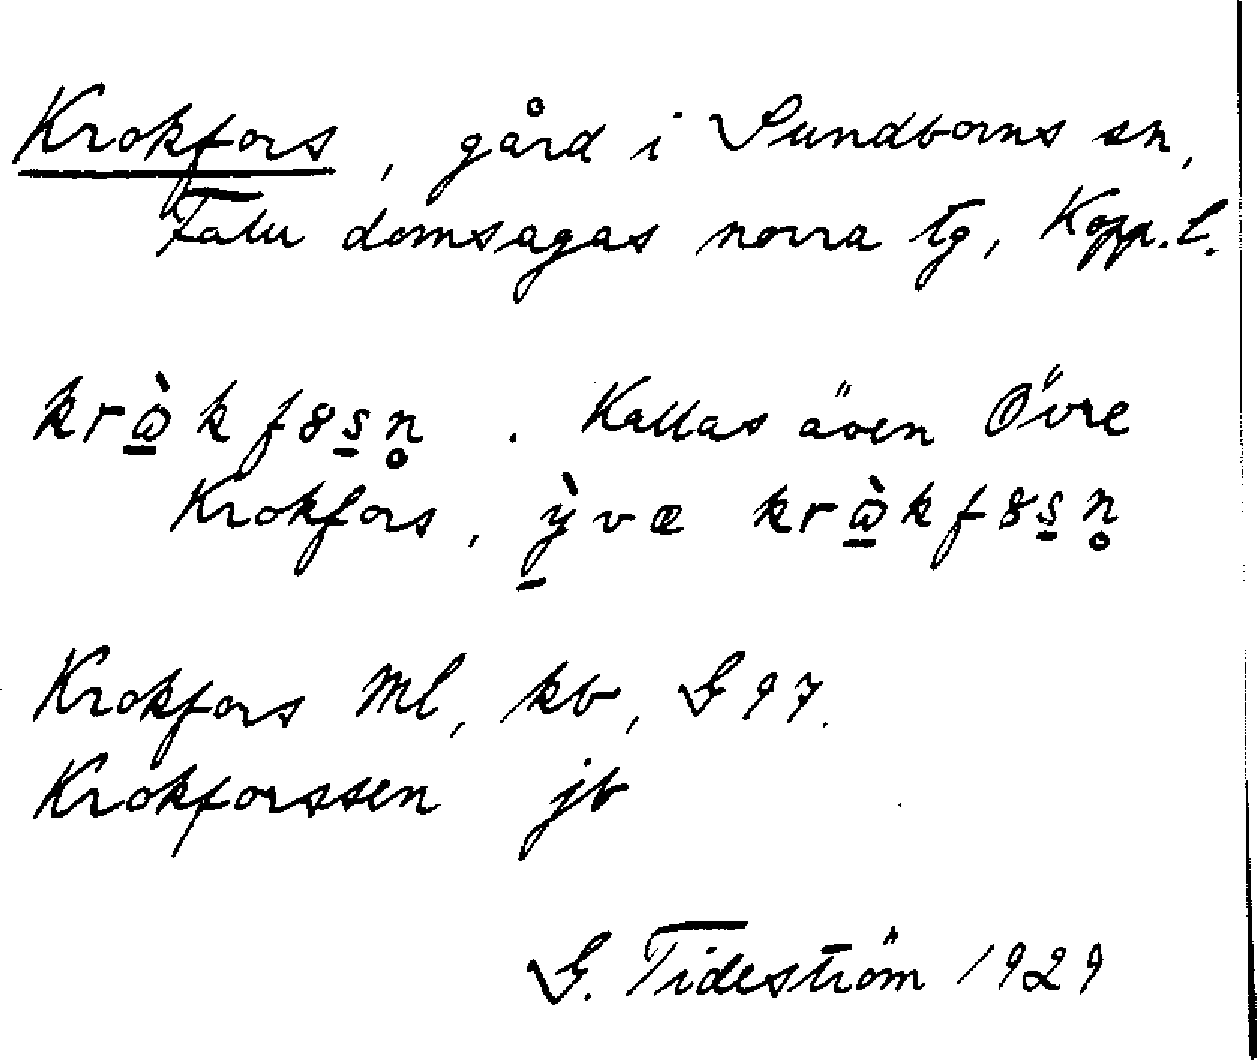 Krokfors, gård i Sundborns sn,
Falu domsagas norra tg, Kopp. l.
krὼ̱kf8s̱n̥. Kallas även Övre
Krokfors, ỳ̱væ krὼ̱kf8s̱n̥
Krokfors Ml, kb, G 97.
Krokforssen jb
G. Tideström 1929